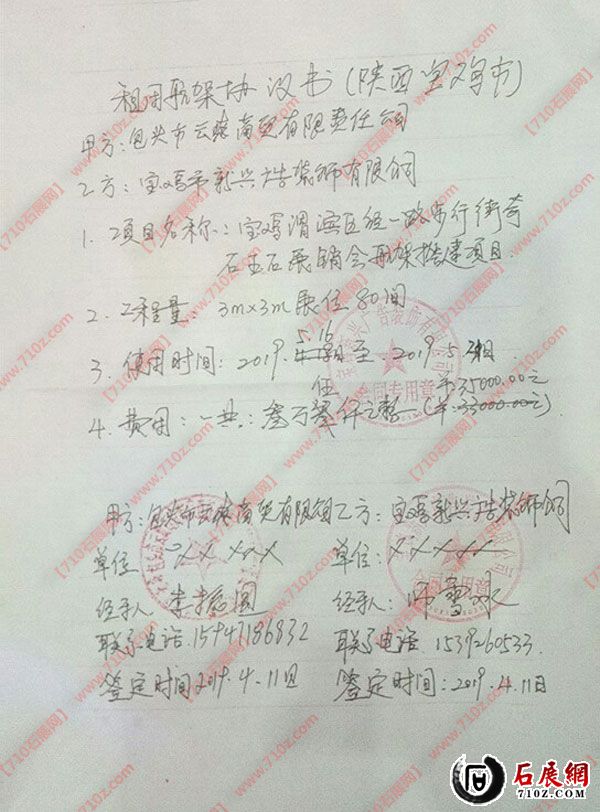 租用航架协议书(陕西宝鸡市)
甲方:包头市云越商贸有限责任公司
乙方:宝鸡市新兴广告装饰有限公司
1、项目名称:宝鸡渭滨区经一路步行街奇
石玉石展销会航架搭建项目
2、工程量:3m×3m展位80间
5.16
3、使用时间:2019. 至2019.5.
伍 ¥35000.00元
4、费用:一共:叁万叁仟元整(¥33000.00元)
甲方:包头市云越商贸有限公司 乙方:宝鸡新兴广告装饰公司
单位 xx xxx 单位:xx xxx
经手人 李 圆 经手人:师雪冰
联系电话 15947186832 联系电话 1539260533
签定时间2019.4.11日 签定时间:2019.4.11日
合同专用章
【710石展网】 www.710z.com
石展網
710Z.COM